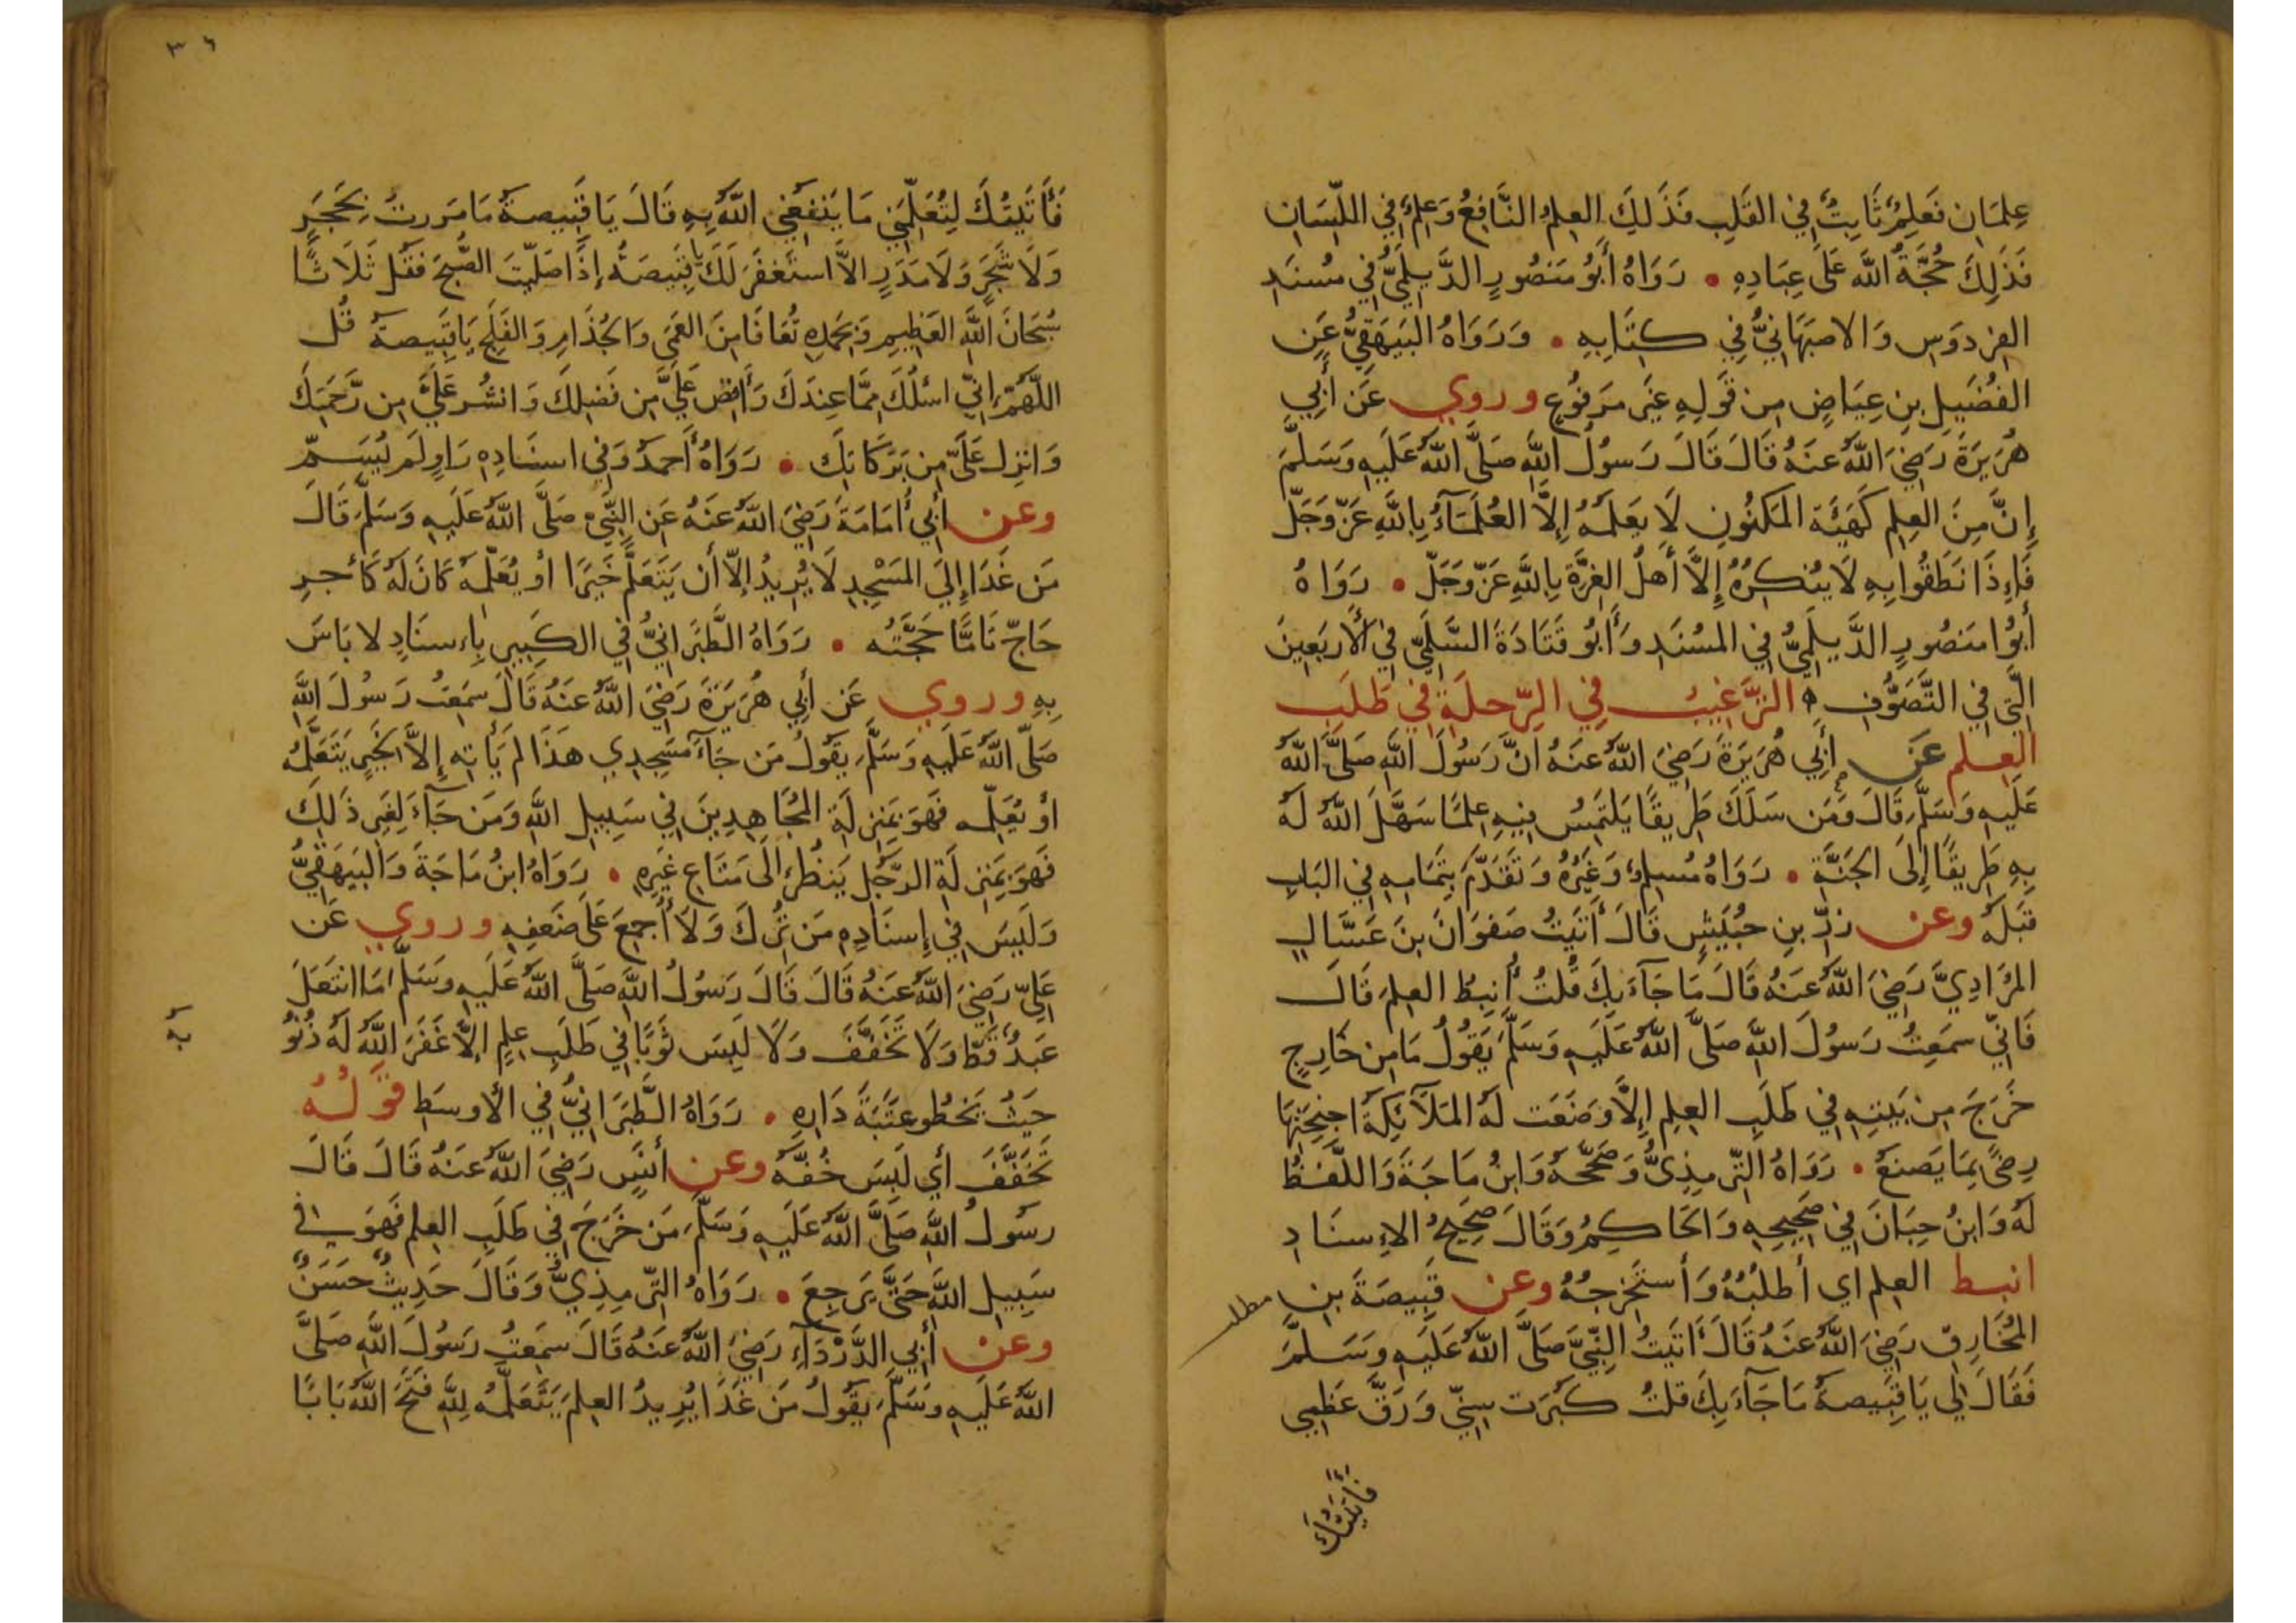 عِلمَان فَعَلِمٌ ثَابِتٌ فِي القَلبِ فَذَلِكَ العِلمُ النَّافِعُ وَعِلمٌ فِي اللّسَانِ
فَذَلِكَ حُجَّةُ اللَّه عَلَى عِبَادِهِ • رَوَاهُ أَبُو مَنصُورٍ الدَّيلَمِيُّ فِي مُسنَدِ
الفردَوسِ وَالاصبَهَانِيُّ فِي كِتَابِهِ • وَرَوَاهُ البَيهَقِيُّ عَنِ
الفُضَيلِ بنِ عِيَاضٍ مِن قَولِهِ غَيرَ مَرفُوعٍ وروي عَن أَبِي
هُرَيرَةَ رَضِيَ اللَّهُ عَنهُ قَالَ قَالَ رَسُولُ اللَّهِ صَلَّى اللَّهُ عَلَيهِ وَسَلَّمَ
إِنَّ مِنَ العِلمِ كَهَيئَةِ المَكنُونِ لَا يَعلَمُهُ إِلَّا العُلَمَآءُ بِاللَّهِ عَزَّ وَجَلّ
فَاِذَا نَطَقُوا بِهِ لَا يُنكِرُهُ إِلَّا أَهلُ الغِرَّةِ بِاللَّهِ عَزّ وَجَلّ • رَوَاهُ
أَبُوا مَنصُورٍ الدَّيلَمِيُّ فِي المُسنَدِ وَأَبُو قَتَادَةَ السَّلَمِيّ فِي الأَربَعِينَ
الَّتِي فِي التَّصَوُّفِ ه التَّرغِيبُ فِي الرِّحلَةِ فِي طَلَبِ
العِلم عَن أَبِي هُرَيرَةَ رَضِيَ اللَّهُ عَنهُ انَّ رَسُولَ اللَّهِ صَلَّى اللَّهُ
عَلَيهِ وَسَلَّمَ قَالَ وَمَن سَلَكَ طَرِيقًا يَلتَمِسُ فِيهِ عِلمًا سَهَّلَ اللَّهُ لَهُ
بِهِ طَرِيقًا إِلَى الجَنَّةِ • رَوَاهُ مُسلِمٌ وَغَيرُهُ وَتَقَدَّمَ بِتَمَامِهِ فِي البَابِ
قَبلَهُ وعن زِرِّ بنِ حُبَيشٍ قَالَ أَتَيتُ صَفوَانَ بنَ عَسَّالٍ
المُرَادِيَّ رَضِيَ اللَّهُ عَنهُ قَالَ مَا جَآءَ بِكَ قُلتُ أُنبِطُ العِلمَ قَالَ
فَانِّي سَمِعتُ رَسُولَ اللَّهِ صَلَّى اللَّهُ عَلَيهِ وَسَلَّمَ يَقُولُ مَا مِن خَارِجٍ
خَرَجَ مِن بَيتِهِ فِي طَلَبِ العِلمِ إِلَّا وَضَعَت لَهُ المَلَآئِكَةُ اجنِحَتَهَا
رِضًى بِمَا يَصنَعُ • رَوَاهُ التّرمِذِيُّ وَصَحَّحَهُ وَابنُ مَاجَةَ وَاللَّفظُ
لَهُ وَابنُ حِبَانَ فِي صَحِيحِهِ وَالحَاكِمُ وَقَالَ صَحِيحُ الاِسنَادِ
انبط العِلم اي أطلُبُهُ وَأستَخرِجُهُ وعن قَبِيصَةَ بنِ
مطلب
المُخَارِقِ رَضِيَ اللَّهُ عَنهُ قَالَ أَتَيتُ النَّبِيَّ صَلَّى اللَّهُ عَلَيهِ وَسَلَّمَ
فَقَالَ لِي يَا قَبِيصَةُ مَا جَآءَ بِكَ قلتُ كَبُرَت سِنِّي وَرَقَّ عَظمِي
فَأَتَيتُكَ
٣٦
فَأَتَيتُكَ لِتُعَلِّمَنِي مَا يَنفَعُنِي اللَّهُ بِهِ قَالَ يَا قَبِيصَةُ مَا مَرَرتَ بِحَجَرٍ
وَلَا شَجَرٍ وَلَا مَدَرٍ الاَّ استَغفَرَ لَكَ يا قَبِيصَةُ إِذَا صَلَّيتَ الصُّبحَ فَقُل ثَلَاثًا
سُبحَانَ اللَّهِ العَظِيمِ وَبِحَمدِهِ تُعَافَا مِنَ العَمَى وَالجُذَامِ وَالفَلَجِ يَا قَبِيصَةُ قُل
اللَّهُمَّ إِنِّي اسئَلُكَ مِمَّا عِندَكَ وَأَفِض عَلَيَّ مِن فَضلِكَ وَانشُر عَلَيَّ مِن رَّحمَتِكَ
وَانزِل عَلَيَّ مِن بَرَكَاتِكَ • رَوَاهُ أَحمَدُ وَفِي اسنَادِهِ رَاوٍ لَم يُسَمّ
وعن أَبِي أُمَامَةَ رَضِيَ اللَّهُ عَنهُ عَنِ النَّبِيّ صَلَّى اللَّهُ عَلَيهِ وَسَلَّمَ قَالَ
مَن غَدَا إِلَى المَسْجِدِ لَا يُرِيدُ إِلاَّ أَن يَتَعَلَّمَ خَيرًا أو يُعَلِّمَهُ كَانَ لَهُ كَأَجرِ
حَاجّ تَامًّا حَجَّتُه • رَوَاهُ الطَّبَرَانِيُّ فِي الكَبِيرِ بِاِسنَادٍ لا بَاسَ
بِهِ وروي عَن أَبِي هُرَيرَةَ رَضِيَ اللَّهُ عَنهُ قَالَ سَمِعتُ رَسُولَ اللَّهِ
صَلَّى اللَّهُ عَلَيهِ وَسَلَّمَ يَقُولُ مَن جَآءَ مَسجِدِي هَذَا لَم يَأتِهِ إِلاَّ لِخَيرٍ يَتَعَلَّمُهُ
أو يُعَلِّمه فَهُوَ بِمَنزِلَةِ المُجَاهِدِينَ فِي سَبِيلِ اللَّهِ وَمَن جَآءَ لِغَيرِ ذَلِكَ
فَهُوَ بِمَنزِلَةِ الرَّجُلِ يَنظُرُ إِلَى مَتَاعِ غَيرِهِ • رَوَاهُ ابنُ مَاجَةَ وَالبَيهَقِيُّ
وَلَيسَ فِي إِسنَادِهِ مَن تُرِكَ وَلَا أُجمِعَ عَلَى ضَعفِهِ وروي عَن
عَلِيّ رَضِيَ اللَّهُ عَنهُ قَالَ قَالَ رَسُولُ اللَّهِ صَلَّى اللَّهُ عَلَيهِ وَسَلَّمَ مَا انتَعَلَ
عَبدٌ قَطُّ وَلَا تَخَفَّفَ وَلَا لَبِسَ ثَوبًا فِي طَلَبِ عِلمٍ إِلاَّ غَفَرَ اللَّهُ لَهُ ذُنُو
به
حَيثُ يَخطُو عَتَبَةَ دَارِهِ • رَوَاهُ الطَّبَرَانِيُّ فِي الأَوسَطِ قَولُهُ
تَخَفَّفَ أي لَبِسَ خُفَّهُ وعن أَنَسٍ رَضِيَ اللَّهُ عَنهُ قَالَ قَالَ
رَسُولُ اللَّهِ صَلَّى اللَّهُ عَلَيهِ وَسَلَّمَ مَن خَرَجَ فِي طَلَبِ العِلمِ فَهُوَ فِي
سَبِيلِ اللَّهِ حَتَّى يَرجِعَ • رَوَاهُ التّرمِذِيُّ وَقَالَ حَدِيثٌ حَسَنٌ
وعن أَبِي الدَّرْدَآءِ رَضِيَ اللَّهُ عَنهُ قَالَ سَمِعتُ رَسُولَ اللَّهِ صَلَّى
اللَّهُ عَلَيهِ وَسَلَّمَ يَقُولُ مَن غَدَا يُرِيدُ العِلمَ يَتَعَلَّمُهُ لِلَّهِ فَتَحَ اللَّهُ بَابًا